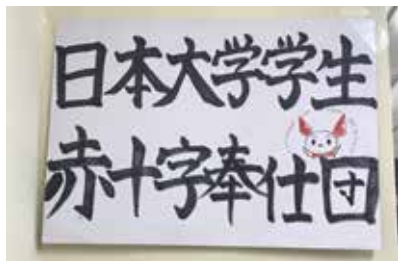 日本大学学生
赤十字奉仕団